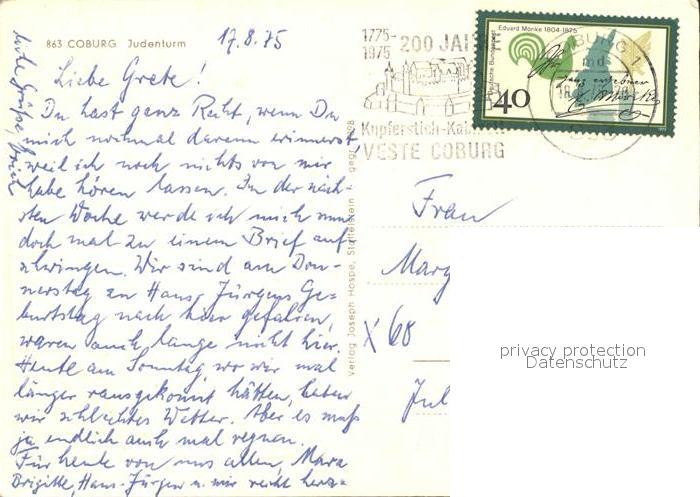 863 COBURG Judenturm
17.8.75
Liebe Grete!
Du hast ganz Recht, wenn Du
mich nochmal daran erinnerst,
weil ich noch nichts von mir
habe hören lassen. In der näch-
sten Woche werde ich mich nun
doch mal zu einem Brief auf-
schwingen. Wir sind am Don-
nerstag zu Hans-Jürgens Ge-
burtstag nach hier gefahren,
waren auch lange nicht hier.
Heute am Sonntag, wo wir mal
länger rausgekonnt hätten, haben
wir schlechtes Wetter. Aber es muß
ja endlich auch mal regnen.
Für heute von uns allen,
Brigitte, Hans-Jürgen u. mir recht herz-
liche Grüße,
Verlag Joseph Hospe, Staffelstein
1775-
1975
200 JAHRE
Kupferstich-Kabinett
VESTE COBURG
Eduard Mörike 1804-1875
Deutsche Bundespost
40
COBURG 1
md
Frau
Marg
X 60
Jul
privacy protection
Datenschutz